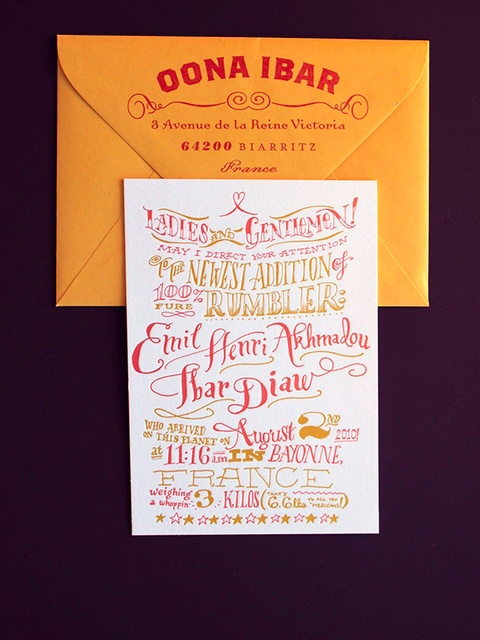 OONA IBAR
3 Avenue de la Reine Victoria
64200 BIARRITZ
France
LADIES AND GENTLEMEN!
MAY I DIRECT YOUR ATTENTION
TO THE NEWEST ADDITION of
100% PURE RUMBLER:
Emil Henri Akhmadou
Ibar Diaw
WHO ARRIVED ON THIS PLANET ON August 2ND 2010!
at 11:16 am IN BAYONNE,
FRANCE
weighing a whoppin' 3. KILOS (THAT'S 6.6 lbs TO ALL YOU 'MERICANS!)